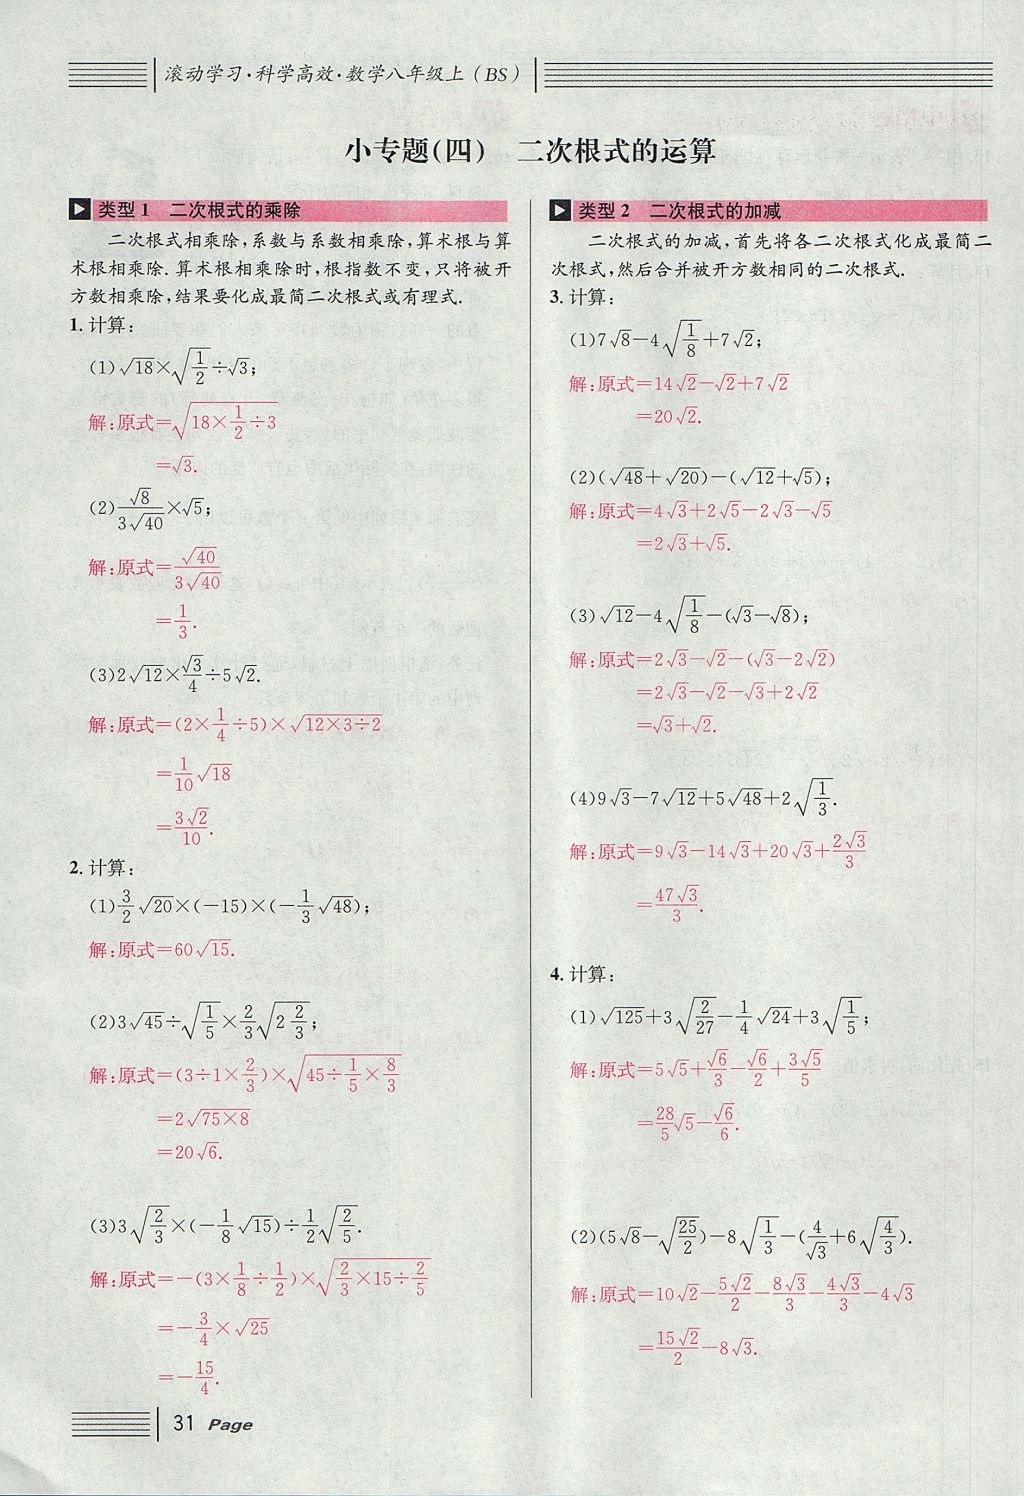 滚动学习·科学高效·数学八年级上(BS)
小专题(四) 二次根式的运算
类型1 二次根式的乘除
二次根式相乘除,系数与系数相乘除,算术根与算
术根相乘除.算术根相乘除时,根指数不变,只将被开
方数相乘除,结果要化成最简二次根式或有理式.
1.计算:
(1)√18×√(1/2)÷√3;
解:原式=√(18×1/2÷3)
=√3.
(2)√8/(3√40)×√5;
解:原式=√40/(3√40)
=1/3.
(3)2√12×√3/4÷5√2.
解:原式=(2×1/4÷5)×√(12×3÷2)
=1/10√18
=3√2/10.
2.计算:
(1)3/2√20×(-15)×(-1/3√48);
解:原式=60√15.
(2)3√45÷√(1/5)×2/3√(2 2/3);
解:原式=(3÷1×2/3)×√(45÷1/5×8/3)
=2√(75×8)
=20√6.
(3)3√(2/3)×(-1/8√15)÷1/2√(2/5).
解:原式=-(3×1/8÷1/2)×√(2/3×15÷2/5)
=-3/4×√25
=-15/4.
31 Page
类型2 二次根式的加减
二次根式的加减,首先将各二次根式化成最简二
次根式,然后合并被开方数相同的二次根式.
3.计算:
(1)7√8-4√(1/8)+7√2;
解:原式=14√2-√2+7√2
=20√2.
(2)(√48+√20)-(√12+√5);
解:原式=4√3+2√5-2√3-√5
=2√3+√5.
(3)√12-4√(1/8)-(√3-√8);
解:原式=2√3-√2-(√3-2√2)
=2√3-√2-√3+2√2
=√3+√2.
(4)9√3-7√12+5√48+2√(1/3).
解:原式=9√3-14√3+20√3+2√3/3
=47√3/3.
4.计算:
(1)√125+3√(2/27)-1/4√24+3√(1/5);
解:原式=5√5+√6/3-√6/2+3√5/5
=28/5√5-√6/6.
(2)(5√8-√(25/2))-8√(1/3)-(4/√3+6√(4/3)).
解:原式=10√2-5√2/2-8√3/3-4√3/3-4√3
=15√2/2-8√3.